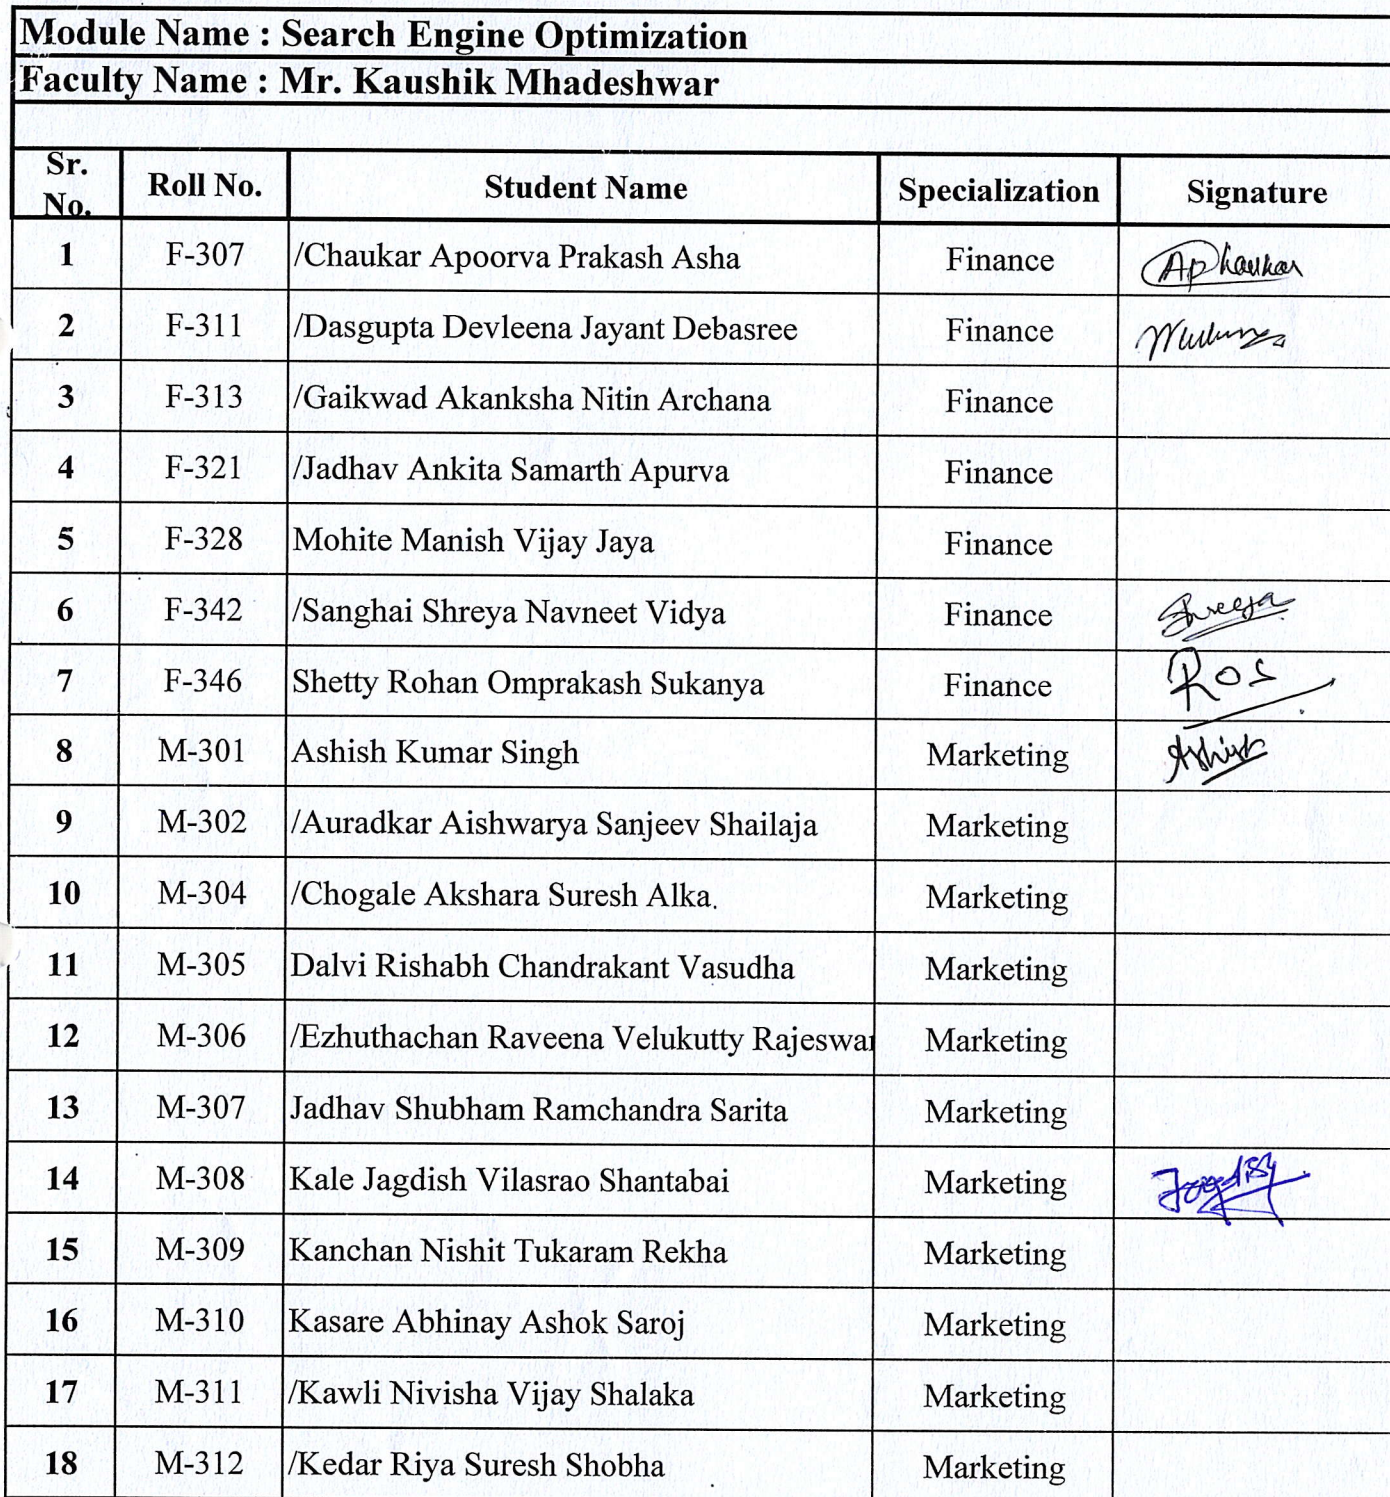 Module Name : Search Engine Optimization
Faculty Name : Mr. Kaushik Mhadeshwar
Sr. No. Roll No. Student Name Specialization Signature
1 F-307 /Chaukar Apoorva Prakash Asha Finance APhaukar
2 F-311 /Dasgupta Devleena Jayant Debasree Finance
3 F-313 /Gaikwad Akanksha Nitin Archana Finance
4 F-321 /Jadhav Ankita Samarth Apurva Finance
5 F-328 Mohite Manish Vijay Jaya Finance
6 F-342 /Sanghai Shreya Navneet Vidya Finance Shreeya
7 F-346 Shetty Rohan Omprakash Sukanya Finance ROS
8 M-301 Ashish Kumar Singh Marketing Ashish
9 M-302 /Auradkar Aishwarya Sanjeev Shailaja Marketing
10 M-304 /Chogale Akshara Suresh Alka. Marketing
11 M-305 Dalvi Rishabh Chandrakant Vasudha Marketing
12 M-306 /Ezhuthachan Raveena Velukutty Rajeswar Marketing
13 M-307 Jadhav Shubham Ramchandra Sarita Marketing
14 M-308 Kale Jagdish Vilasrao Shantabai Marketing Jagdish
15 M-309 Kanchan Nishit Tukaram Rekha Marketing
16 M-310 Kasare Abhinay Ashok Saroj Marketing
17 M-311 /Kawli Nivisha Vijay Shalaka Marketing
18 M-312 /Kedar Riya Suresh Shobha Marketing